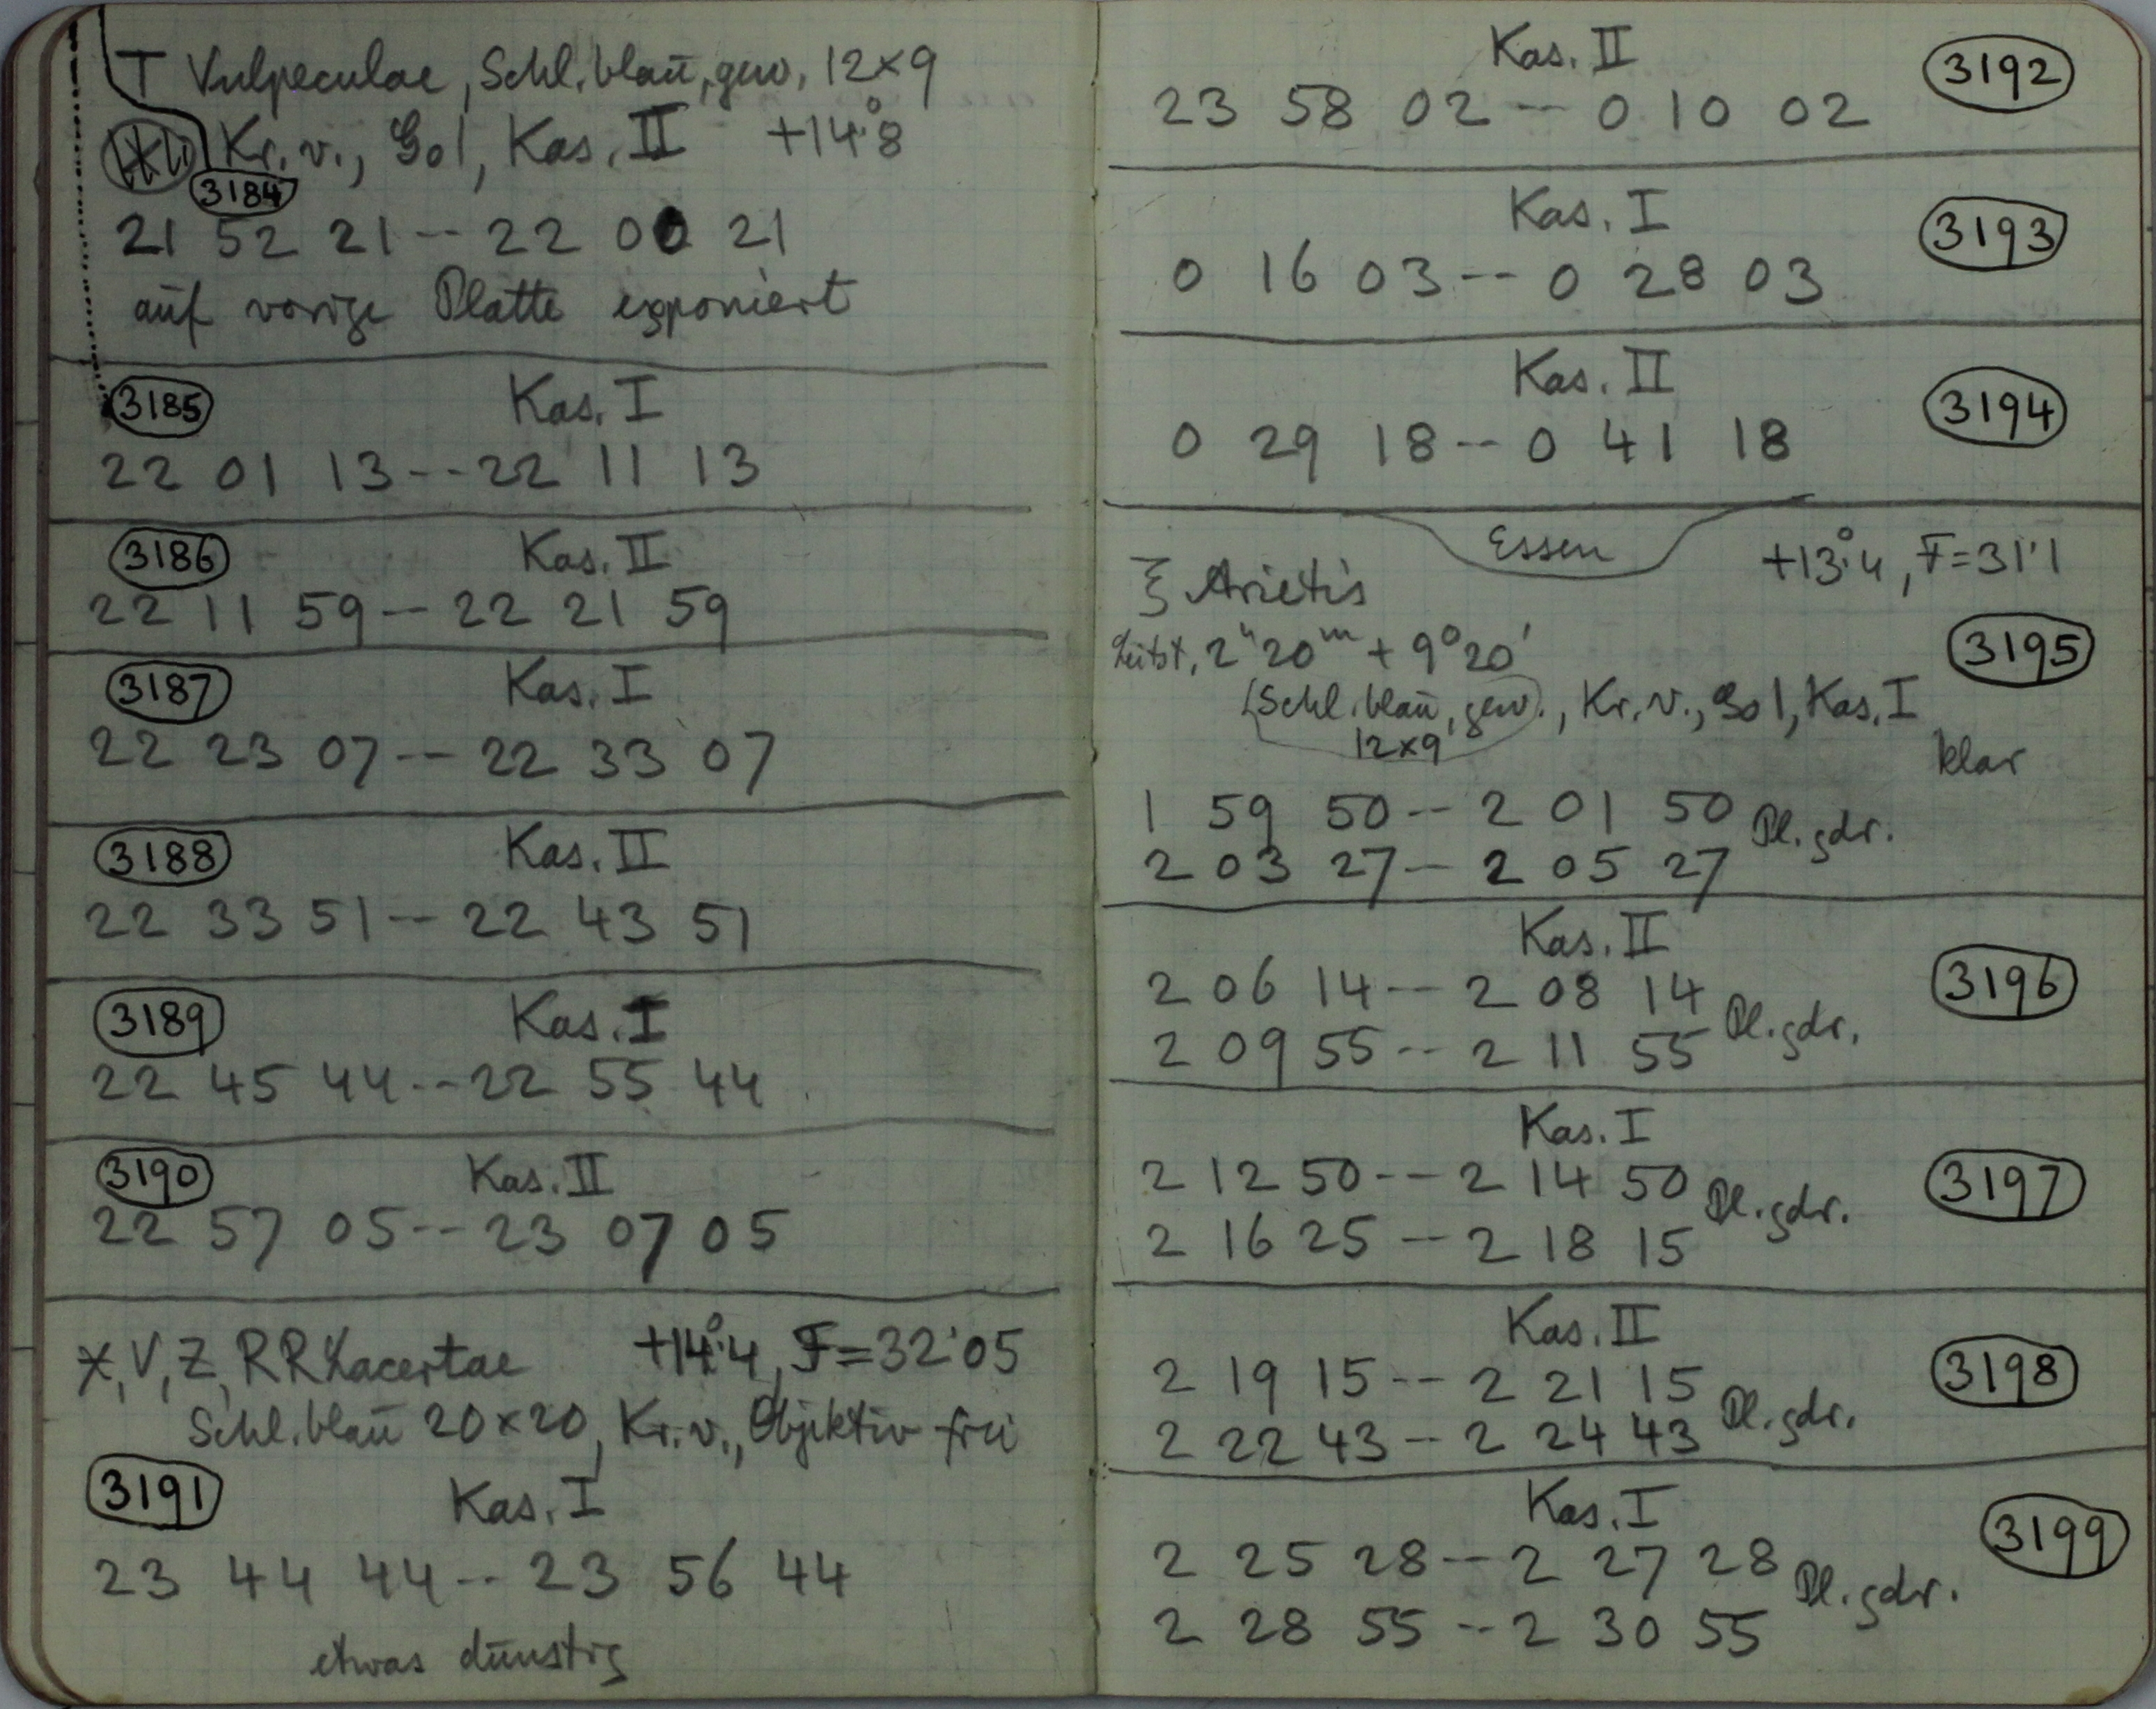 T Vulpeculae, Schl. blaū, gew, 12×9
Kr. v., Gol, Kas. II +14°.8
3184
21 52 21 -- 22 00 21
aūf vorige Platte exponiert
3185 Kas. I
22 01 13 -- 22 11 13
3186 Kas. II
22 11 59 -- 22 21 59
3187 Kas. I
22 23 07 -- 22 33 07
3188 Kas. II
22 33 51 -- 22 43 51
3189 Kas. I
22 45 44 -- 22 55 44
3190 Kas. II
22 57 05 -- 23 07 05
X, V, Z, RR Lacertae +14°.4, F=32'05
Schl. blaū 20×20, Kr. v., Objektiv frei
3191 Kas. I
23 44 44 -- 23 56 44
etwas dūnstig
Kas. II 3192
23 58 02 -- 0 10 02
Kas. I 3193
0 16 03 -- 0 28 03
Kas. II 3194
0 29 18 -- 0 41 18
Essen +13°.4, F=31'1
ξ Arietis
Leitst, 2h 20m + 9° 20' 3195
(Schl. blaū, gew., Kr. v., Gol, Kas. I
12×9 klar
1 59 50 -- 2 01 50 Pl. gdr.
2 03 27 -- 2 05 27
Kas. II 3196
2 06 14 -- 2 08 14 Pl. gdr.
2 09 55 -- 2 11 55
Kas. I 3197
2 12 50 -- 2 14 50 Pl. gdr.
2 16 25 -- 2 18 15
Kas. II 3198
2 19 15 -- 2 21 15 Pl. gdr.
2 22 43 -- 2 24 43
Kas. I 3199
2 25 28 -- 2 27 28 Pl. gdr.
2 28 55 -- 2 30 55